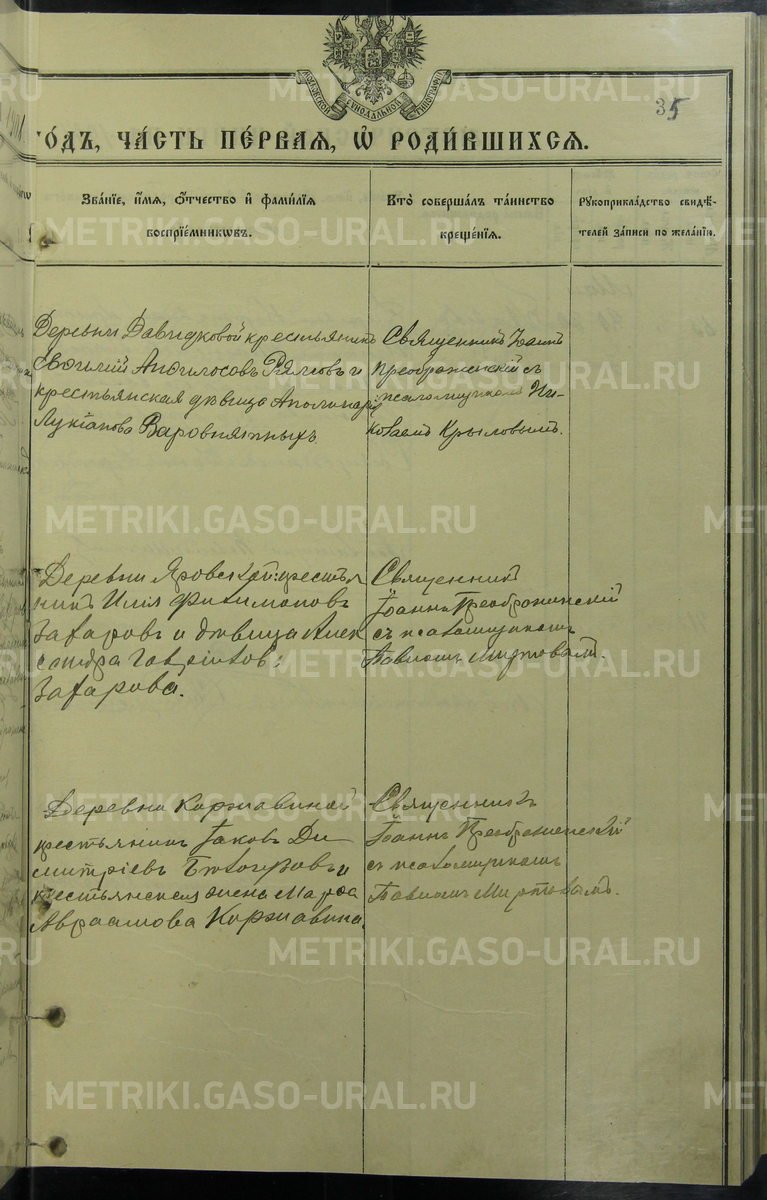 35
годъ, ча́сть пе́рвая, ѡ҆ роди́вшихсѧ.
Зва́нїе, и҆́мѧ, ѻ҆́тчество и҆ фами́лїѧ
воспрїе́мникѡвъ.
Кто̀ соверша́лъ та́инство
креще́нїѧ.
Рꙋкоприкла́дство свидѣ́-
телей за́писи по жела́нїю.
Деревни Давыдковой крестьянинъ
крестьянская дѣвица
Лукіанова
Священникъ Іоаннъ
Преображенскій съ
псаломщикомъ Ни-
колаемъ Крыловымъ.
Деревни крестья
нинъ Илія Филимоновъ
Захаровъ и дѣвица Алек
сандра
Захарова.
Священникъ
Іоаннъ Преображенскій
съ псаломщикомъ
Павломъ Миртовымъ.
Деревни Коржавиной
крестьянинъ Іаковъ Ди
митріевъ и
крестьянская жена Марѳа
Авраамова Коржавина.
Священникъ
Іоаннъ Преображенскій
съ псаломщикомъ
Павломъ Миртовымъ.
METRIKI.GASO-URAL.RU